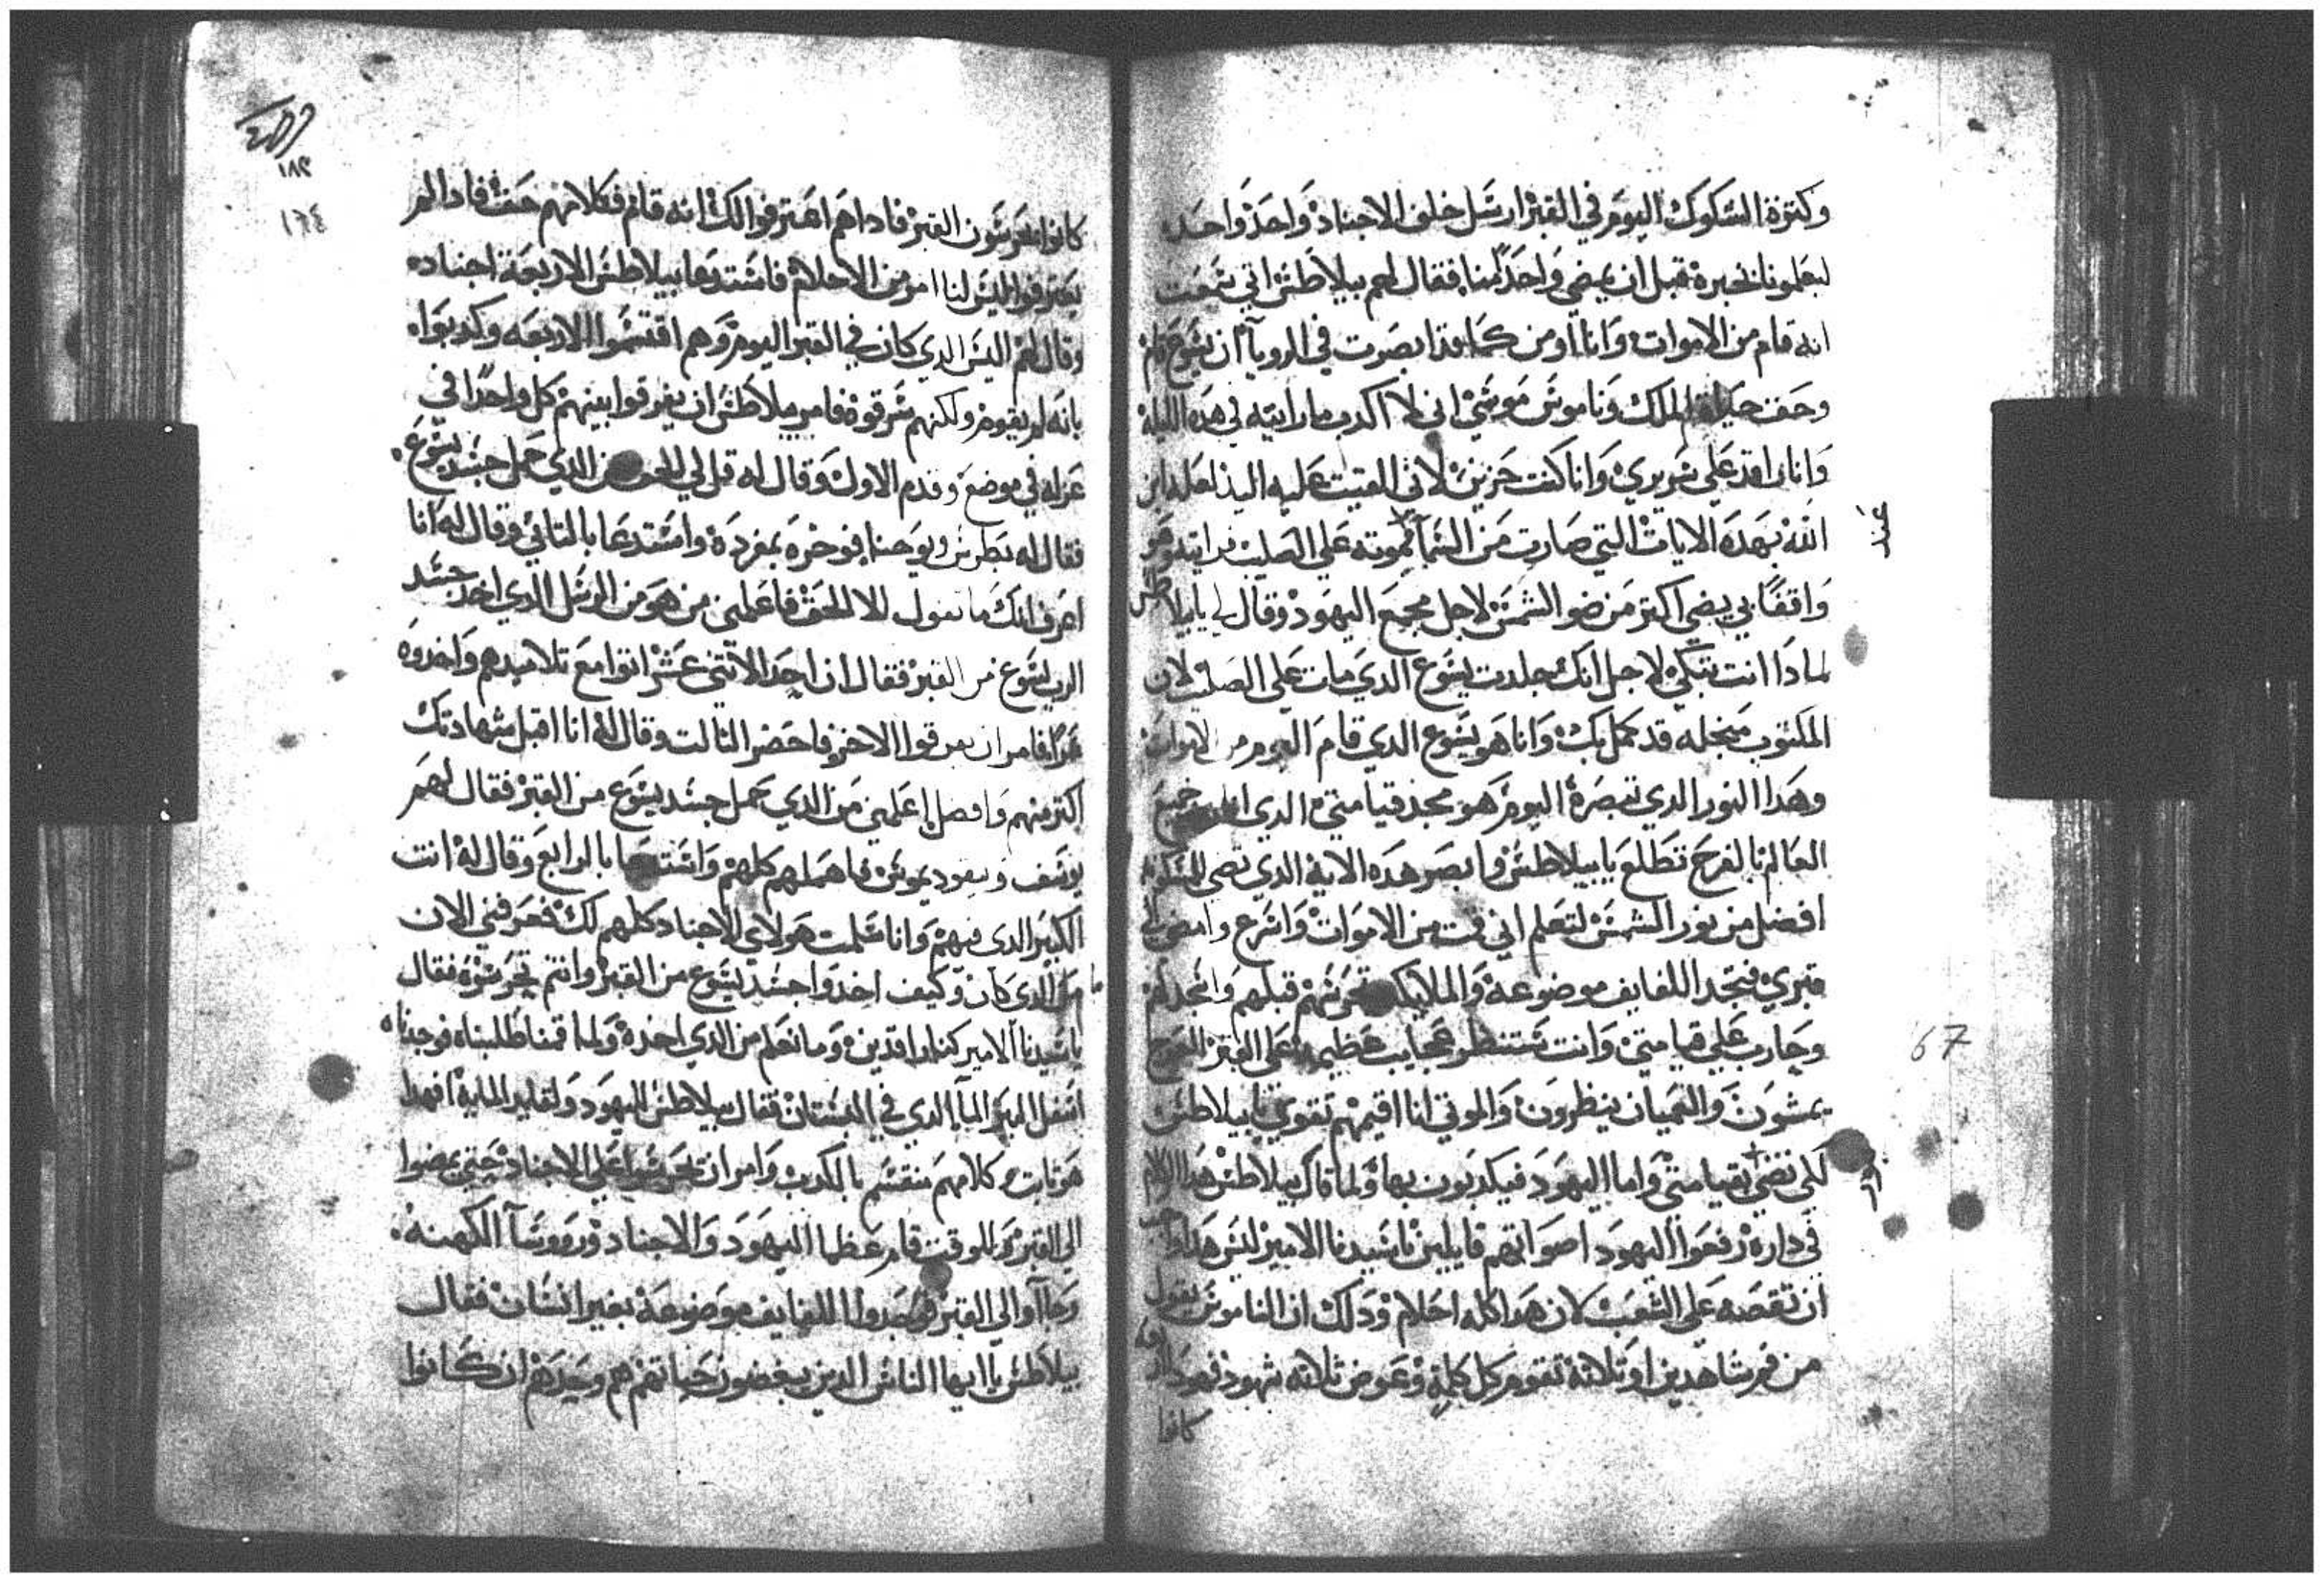 وكترة الشكوك اليوم في القبر ارسل خلف الاجناد واحد واحد
ليعلمونا الخبرة قبل ان يمضي واحد منا فقال لهم بيلاطس اني سمعت
انه قام من الاموات وانا اومن كما قد ابصرت في الرويا ان يسوع قام
وحق حياة الملك وناموس موسي اني لا اكدب ما رايته في هده الليلة
وانا راقد علي سريري وانا كنت حزين لاني القيت عليه اليد لعله ابن
الله بهده الايات التي صارت من السما لموته علي الصليب فرايته وهو
عند
واقفا بي يضي اكتر من ضو الشمس لاجل مجمع اليهود وقال لي يا بيلاطس
لمادا انت تبكي لاجل انك جلدت يسوع الدي مات علي الصليب لان
المكتوب من اجله قد كمل بك وانا هو يسوع الدي قام اليوم من الاموات
وهدا النور الدي تبصره اليوم هو مجد قيامتي الدي جميع
العالم بالفرح تطلع يا بيلاطس وابصر هده الاية الدي تضي للمسكونة
افضل من نور الشمس لتعلم اني قمت من الاموات واسرع وامضي الي
قبري فتجد اللفايف موضوعة والملايكة تحرسهم قبلهم واسجد لهم
وحارب علي قيامتي وانت ستنظر عجايب عظيمة علي القبر العرج
67
يمشون والعميان ينظرون والموتي انا اقيمهم تقوي يا بيلاطس
لكي تضي بقيامتي واما اليهود فيكدبون بها ولما قال بيلاطس هدا الكلام
في داره رفعوا اليهود اصواتهم قايلين يا سيدنا الامير ليس هدا
ان تقصه علي الشعب لان هدا كله احلام ودلك ان الناموس يقول
من فم شاهدين او تلاتة تقوم كل كلمة وعوض تلاته شهود فهودا
كانوا
١٨٢
١٦٤
كانوا يحرسون القبر فاداهم اعترفوا لك انه قام فكلامهم حق فادا لم
يعترفوا فليس لنا امر من الاحلام فاستدعا بيلاطس الاربعة اجناد
وقال لهم اليس الدي كان في القبر اليوم وهم اقتسموا الاربعه وكدبوا
بانه لم يقوم ولكنهم سرقوه فامر بيلاطس ان يفرقوا بينهم كل واحدا في
عزله في موضع وقدم الاول وقال له قل لي الحق من الدي حمل جسد يسوع
فقال له بطرس ويوحنا فوخره بمفرده واستدعا بالتاني وقال له انا
اعرف انك ما تقول الا الحق فاعلمني من هو من الرسل الدي اخد جسد
الرب يسوع من القبر فقال ان احد الاتني عشر اتوا مع تلاميدهم واخدوه
فامر ان يفرقوا الاخر فاحضر التالت وقال له انا اقبل شهادتك
اكتر منهم وافضل اعلمني من الدي حمل جسد يسوع من القبر فقال لهم
يوسف ونيقوديموس فاهملهم كلهم واستدعا بالرابع وقال له انت
الكبير الدي فيهم وانا سلمت هولاي الاجناد كلهم لك فعرفني الان
الدي كان وكيف اخدوا جسد يسوع من القبر وانتم تحرسوه فقال
يا سيدنا الامير كنا راقدين وما نعلم من الدي اخده ولما قمنا طلبناه فوجدناه
اسفل البير الما الدي في البستان فقال بيلاطس لليهود ولقايد الماية افهدا
هو تابت كلامهم منقسم بالكدب وامر ان يحرسوا علي الاجناد حتي يمضوا
الي القبر وللوقت قام عظما اليهود والاجناد وروسا الكهنه
وجاآوا الي القبر فوجدوا اللفايف موضوعة بغير انسان فقال
بيلاطس يا ايها الناس الدين يبغضون حياتهم هم وحدهم ان كانوا